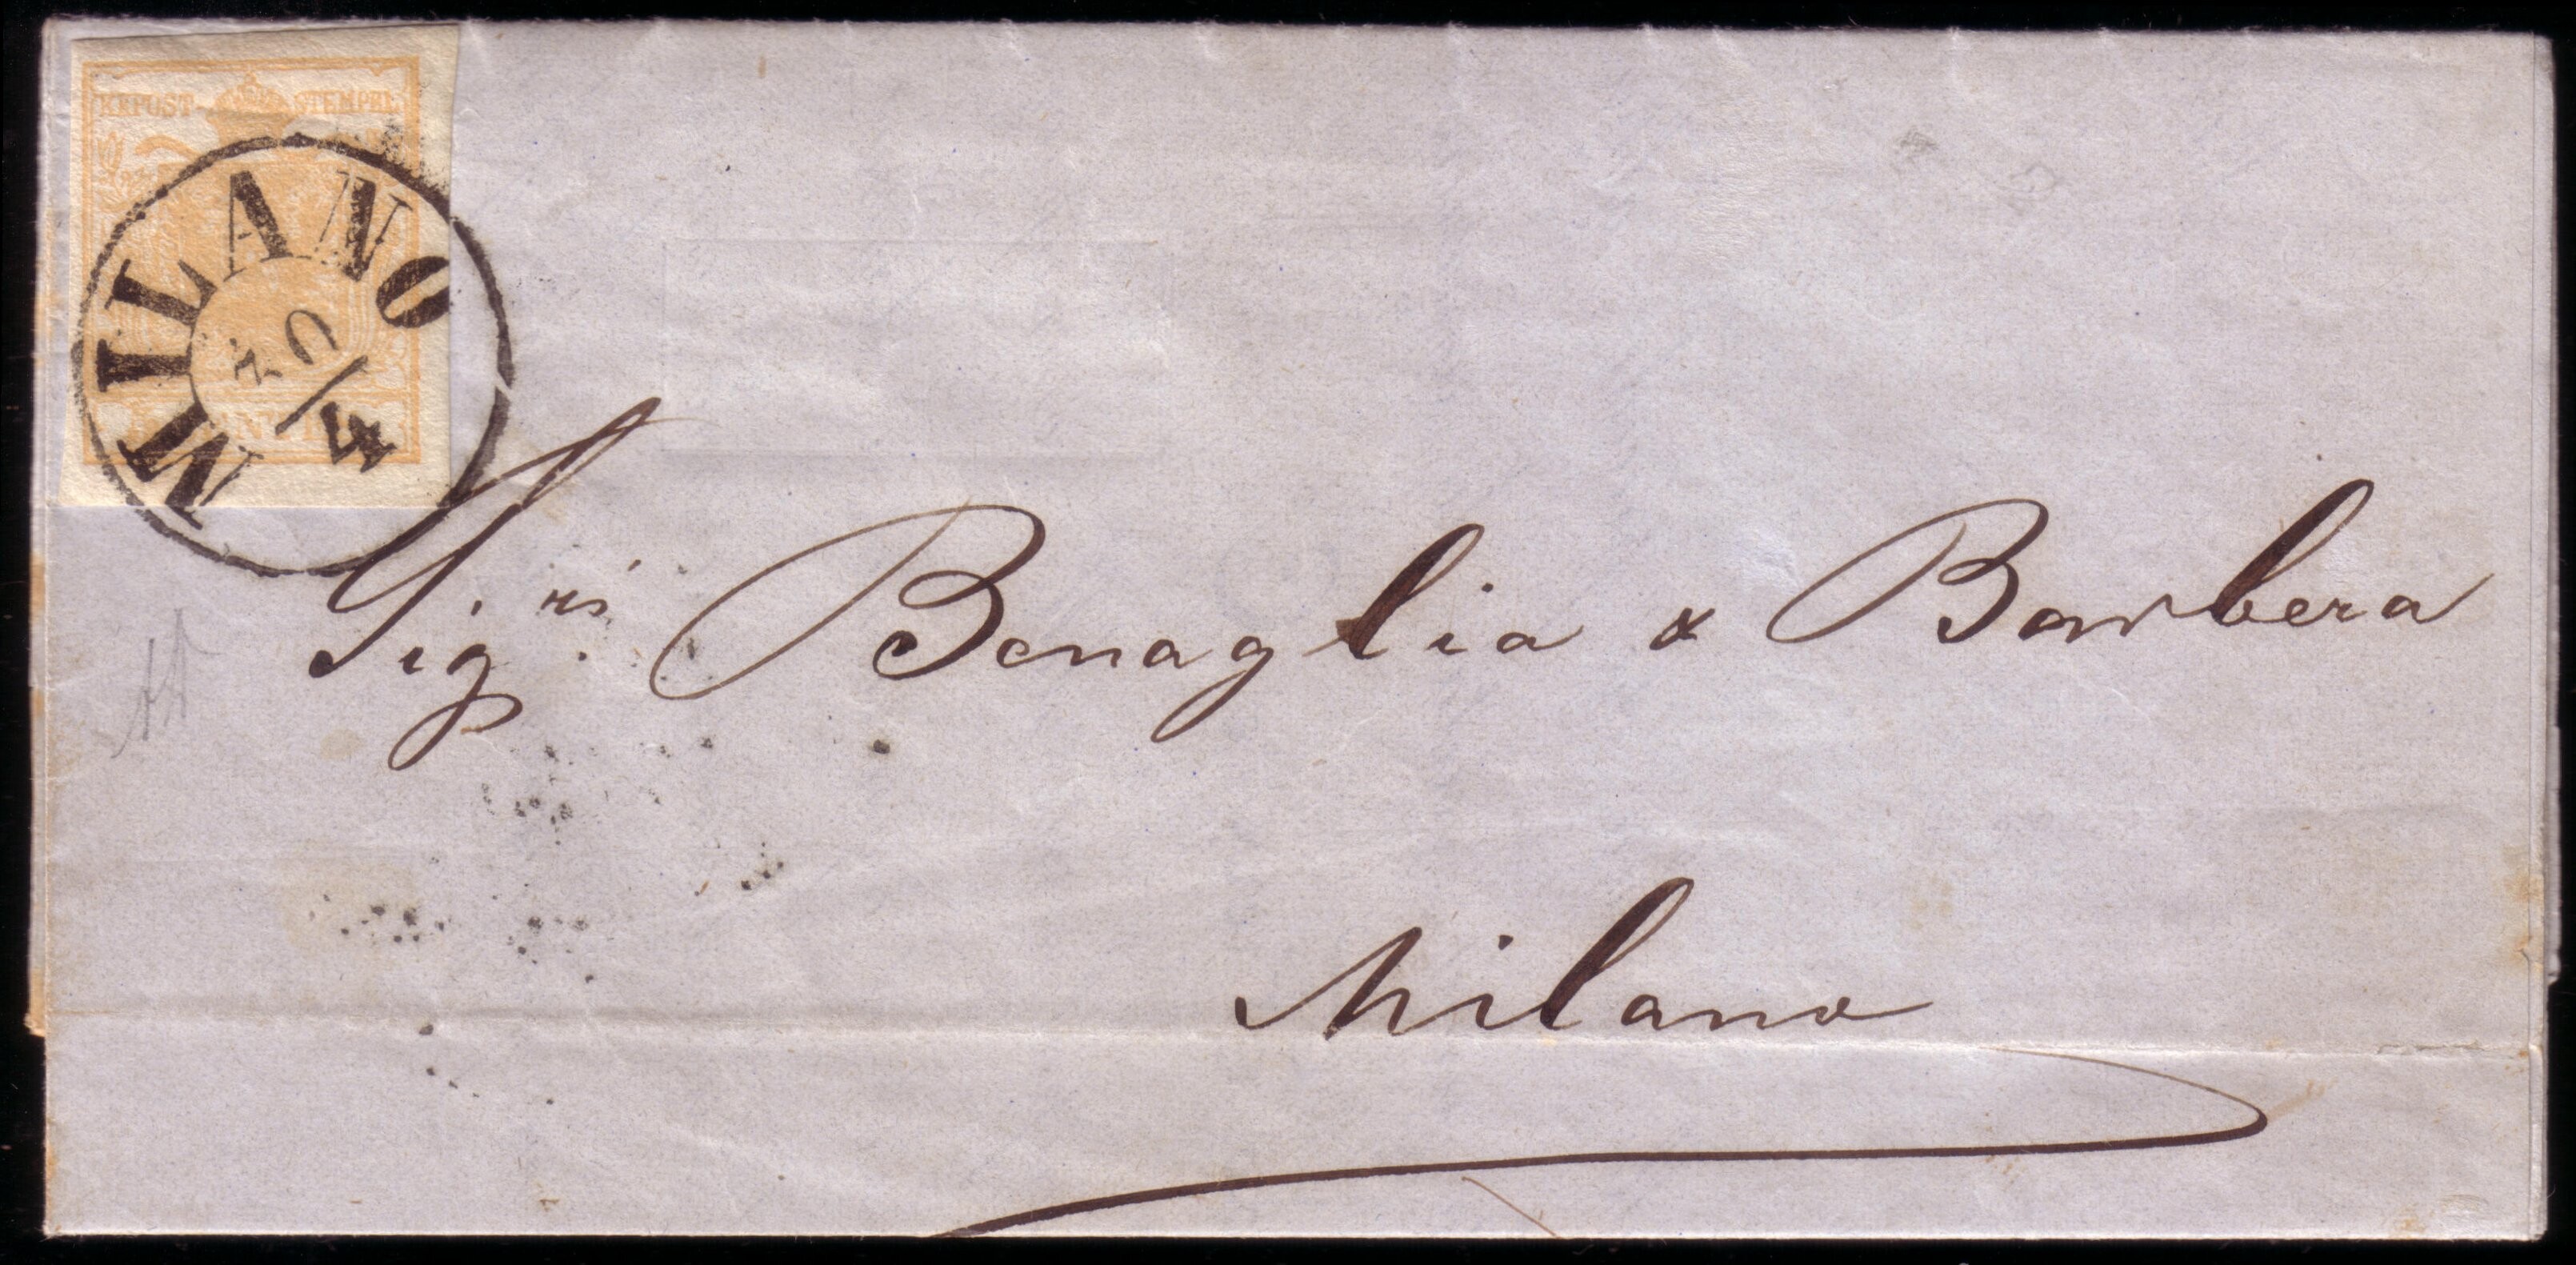 KKPOST-STEMPEL
MILANO
4
Sig.ri Benaglia & Barbera
Milano